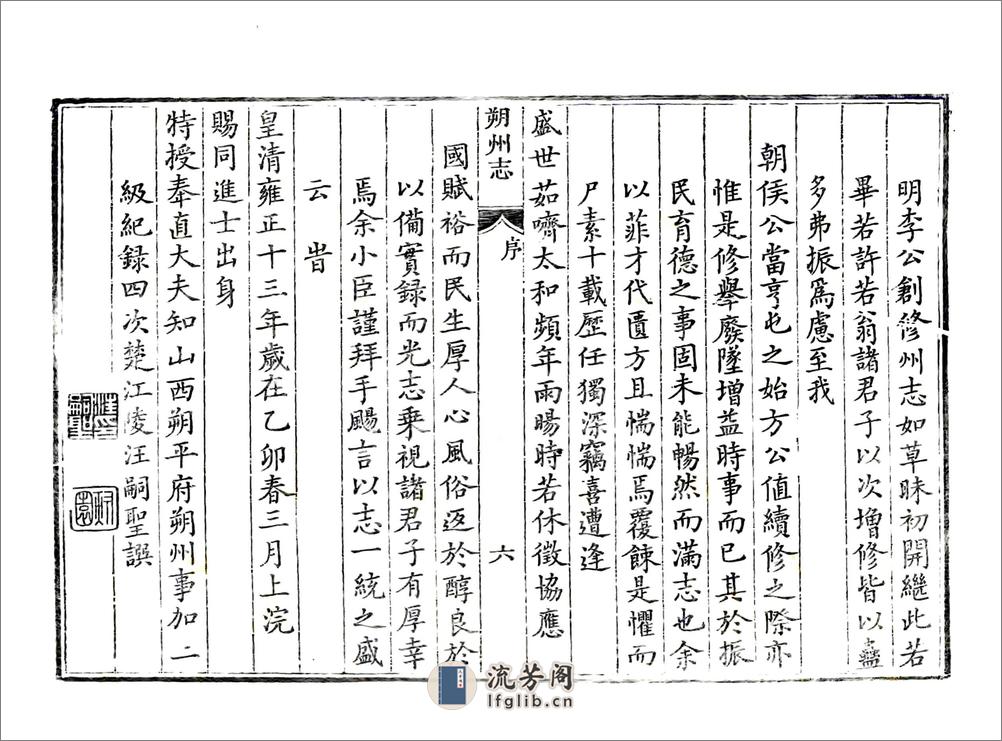 明李公創修州志如草昧初開繼此若
畢若許若翁諸君子以次增修皆以蠱
多弗振爲慮至我
朝侯公當亨屯之始方公值續修之際亦
惟是修舉廢墜增益時事而已其於振
民育德之事固未能暢然而滿志也余
以菲才代匱方且惴惴焉覆餗是懼而
尸素十載歷任獨深竊喜遭逢
盛世茹嚌太和頻年雨暘時若休徵協應
朔州志 序 六
國賦裕而民生厚人心風俗返於醇良於
以備實録而光志乗視諸君子有厚幸
焉余小臣謹拜手颺言以志一統之盛
云 旹
皇清雍正十三年歲在乙卯春三月上浣
賜同進士出身
特授奉直大夫知山西朔平府朔州事加二
級紀録四次楚江陵汪嗣聖譔
流芳阁
lfglib.cn